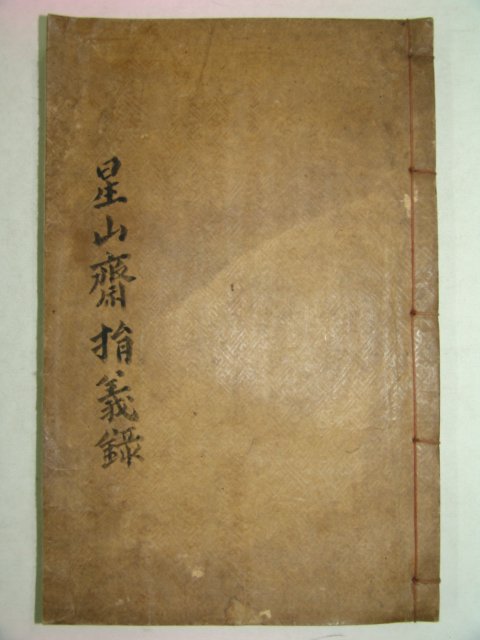 星山齋捐義錄